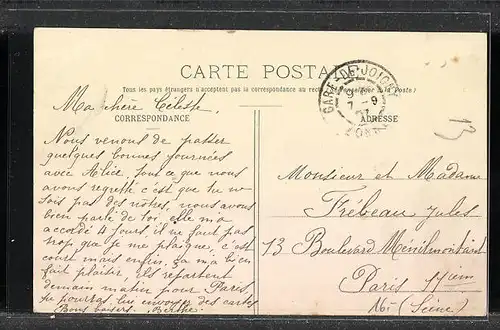 CARTE POSTALE
Tous les pays étrangers n'acceptent pas la correspondance au recto (se renseigner à la Poste)
CORRESPONDANCE
ADRESSE
GARE DE JOIGNY
7-9
YONNE
13
Ma chère Céleste
Nous venons de passer
quelques bonnes journées
avec Alice, tout ce que nous
avons regretté c'est que tu ne
sois pas des nôtres, nous avons
bien parlé de toi, elle m'a
accordé 4 jours, il ne faut pas
trop que je me plaigne, c'est
court mais enfin, ça m'a bien
fait plaisir, ils repartent
demain matin pour Paris,
tu pourras lui envoyer des cartes
Bons baisers. Berthe
Monsieur et Madame
Frébeau Jules
13 Boulevard Ménilmontant
Paris 11ièm
(Seine)